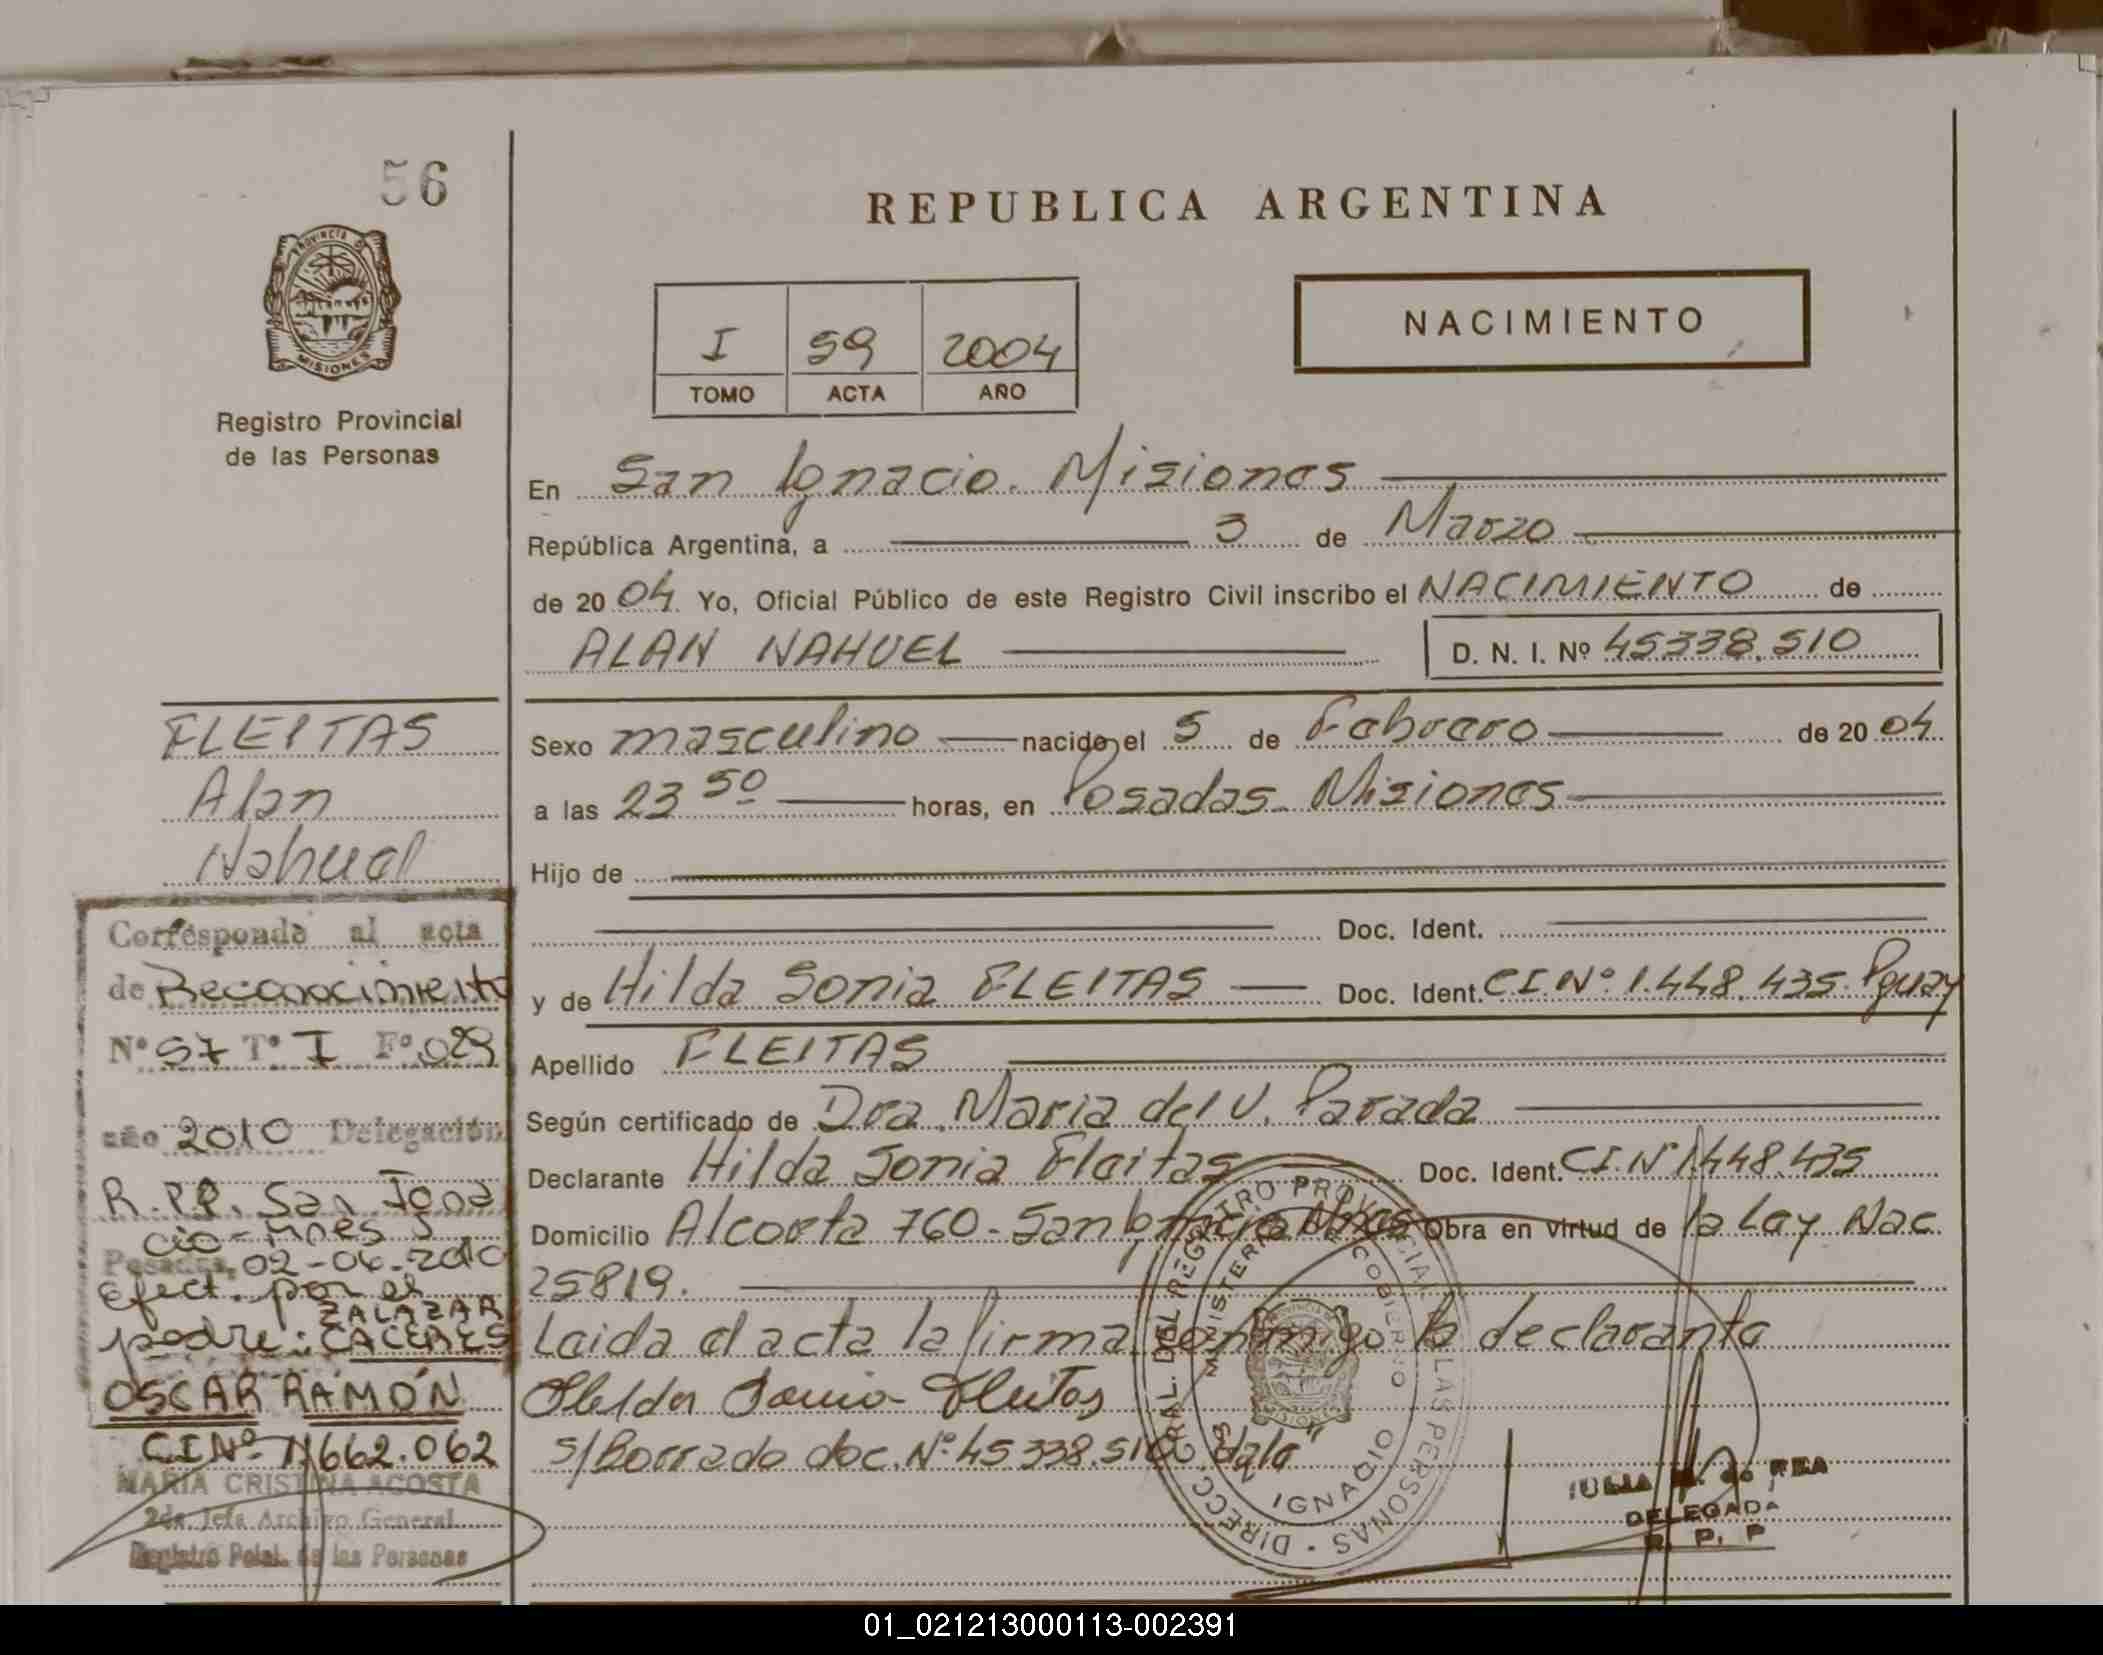 56
REPUBLICA ARGENTINA
PROVINCIA D
MISIONES
I 59 2004
TOMO ACTA AÑO
NACIMIENTO
Registro Provincial
de las Personas
En San Ignacio. Misiones
República Argentina, a 3 de Marzo
de 2004 Yo, Oficial Público de este Registro Civil inscribo el NACIMIENTO de
ALAN NAHUEL D. N. I. Nº 45338.510
Sexo masculino nacido el 5 de Febrero de 2004
a las 23 50 horas, en Posadas Misiones
Hijo de
Doc. Ident.
y de Hilda Sonia FLEITAS Doc. Ident. C.I.Nº 1.448.435. Pguay
Apellido FLEITAS
Según certificado de Dra. Maria del V. Parada
Declarante Hilda Sonia Fleitas Doc. Ident. C.I.Nº 1.448.435
Domicilio Alcorta 760 - San Ignacio Mnes Obra en virtud de la Ley Nac.
25819.
Leida el acta la firma conmigo la declarante
Hilda Sonia Fleitas
s/Borrado doc. Nº 45338.510 "Vale"
DIRECC. GRAL. DEL REGISTRO PROVINCIAL DE LAS PERSONAS
MINISTERIO DE GOBIERNO
IGNACIO
DELEGADA
R. P. P
FLEITAS
Alan
Nahuel
Corresponde al acta
de Reconocimiento
Nº 57 Tº I Fº 029
año 2010 Delegación
R.P.P. San Igna
cio - Mnes
Posadas, 02-06-2010
Efect. por el
padre: ZALAZAR
CACERES
OSCAR RAMÓN
CI Nº 1.662.062
MARIA CRISTINA ACOSTA
2da. Jefa Archivo General
Registro Pcial. de las Personas
01_021213000113-002391